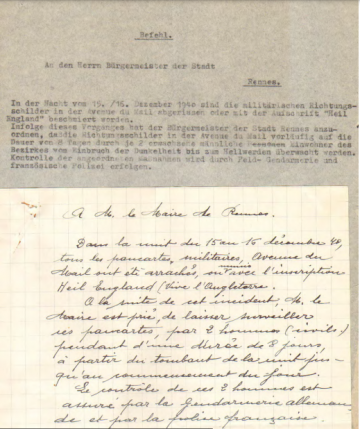 Befehl.
An den Herrn Bürgermeister der Stadt
Rennes.
In der Nacht vom 15. /16. Dezember 1940 sind die militärischen Richtungs-
schilder in der Avenue du Mail abgerissen oder mit der Aufschrift "Heil
England" beschmiert worden.
Infolge dieses Vorganges hat der Bürgermeister der Stadt Rennes anzu-
ordnen, daß die Richtungsschilder in der Avenue du Mail vorläufig auf die
Dauer von 8 Tagen durch je 2 erwachsene männliche Einwohner des
Bezirkes vom Einbruch der Dunkelheit bis zum Hellwerden überwacht werden.
Kontrolle der angeordneten Massnahmen wird durch Feld-Gendarmerie und
französische Polizei erfolgen.
A M. le Maire de Rennes.
Dans la nuit du 15 au 16 décembre 40,
tous les pancartes, militaires, Avenue du
Mail ont été arrachés, ou avec l'inscription
Heil England (Vive l'Angleterre.
A la suite de cet incident, M. le
Maire est prié, de laisser surveiller
ces pancartes, par 2 hommes (civils)
pendant d'une durée de 8 jours,
à partir du tombant de la nuit jus-
qu'au commencement du jour.
Le contrôle de ces 2 hommes est
assuré par la Gendarmerie alleman-
de et par la police française.